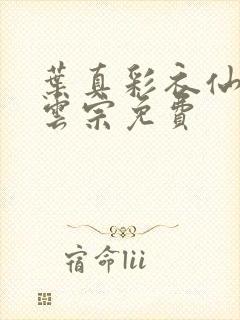 葉真彩衣仙
雲宗免費
宿命lii